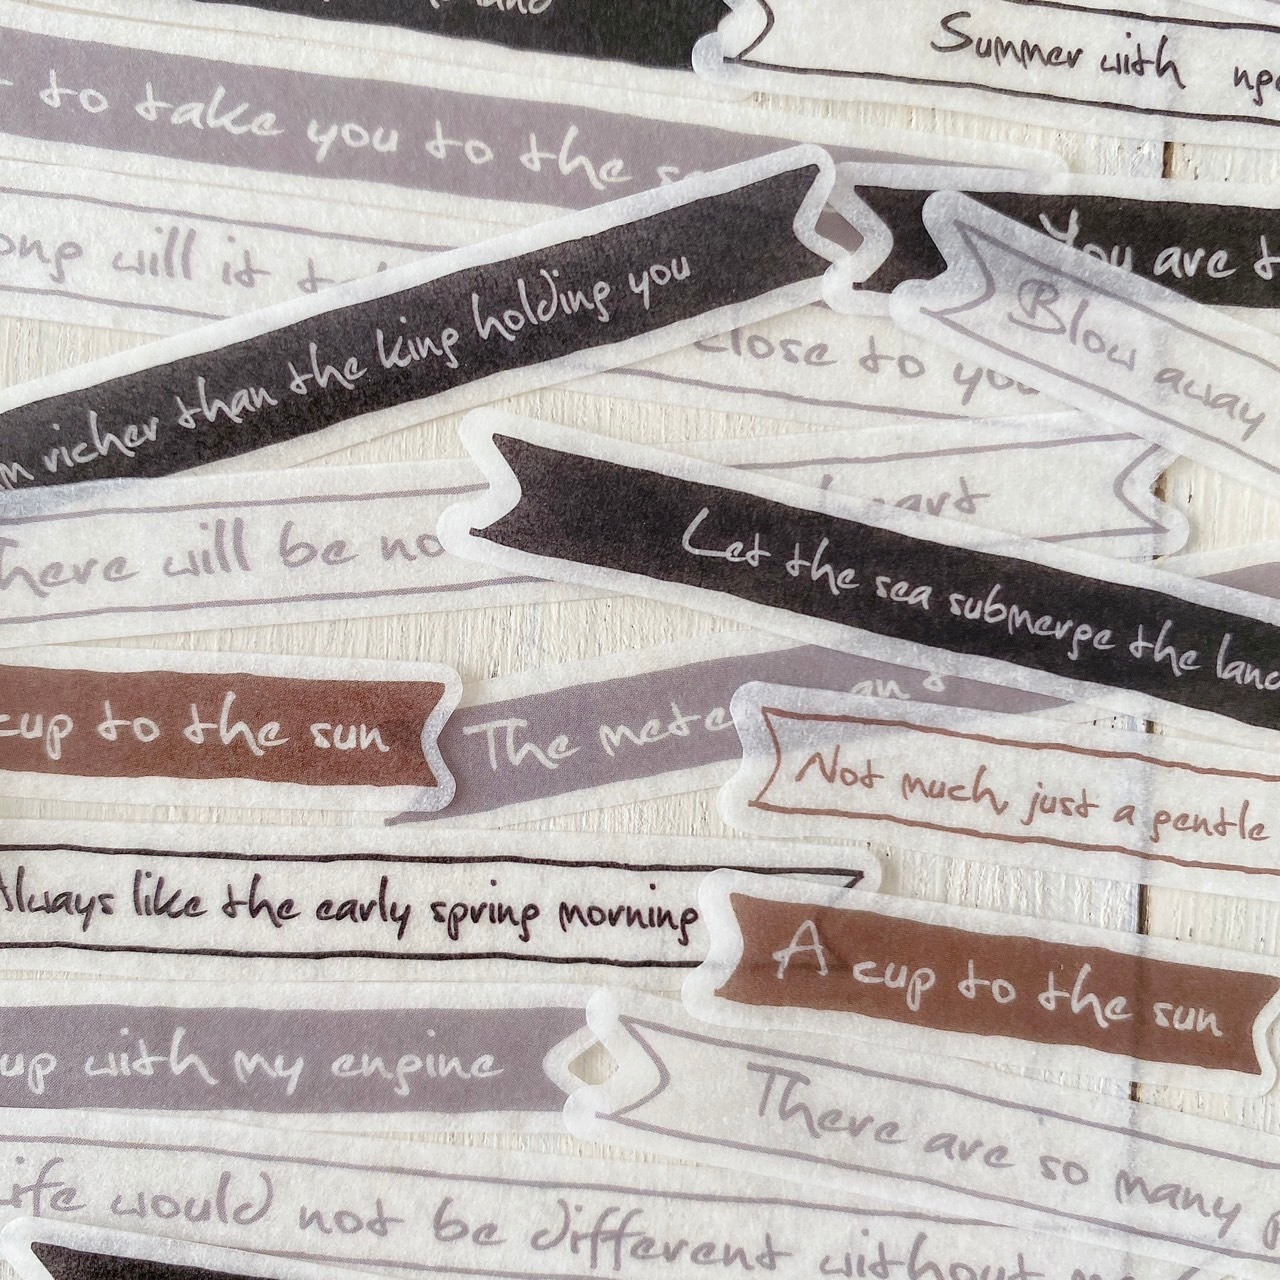 land
Summer with
to take you to the
will it
You are
richer than the king holding you
Blow away
close to you
There will be no
Let the sea submerge the land
cup to the sun
The
Not much, just a gentle
Always like the early spring morning
A cup to the sun
up with my engine
There are so many
Life would not be different without